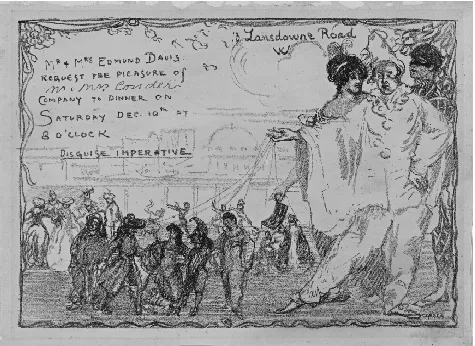 Lansdowne Road
W
Mr & Mrs Edmund Davis
request the pleasure of
Mr & Mrs Conder's
Company to dinner on
Saturday Dec. 19th at
8 o'clock
Disguise imperative